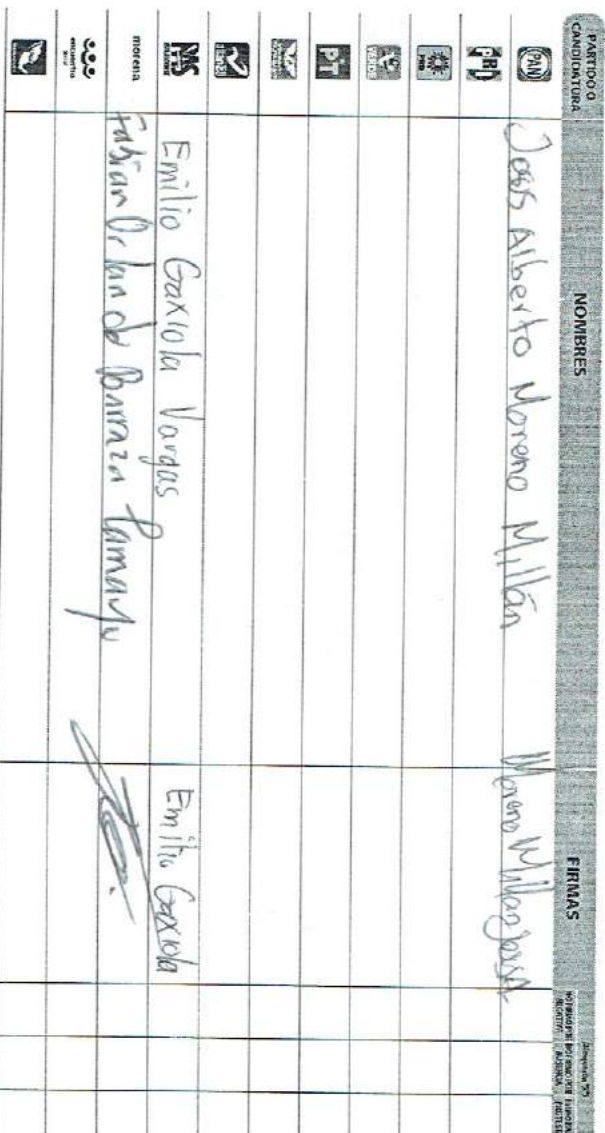 PARTIDO O CANDIDATURA NOMBRES FIRMAS
PAN Jesus Alberto Moreno Millán Moreno Millan Jesus A
PRI
PRD
VERDE
PT
PAS Emilio Gaxiola Vargas Emilio Gaxiola
morena Fabian Orlando Barraza Tamayo
encuentro social